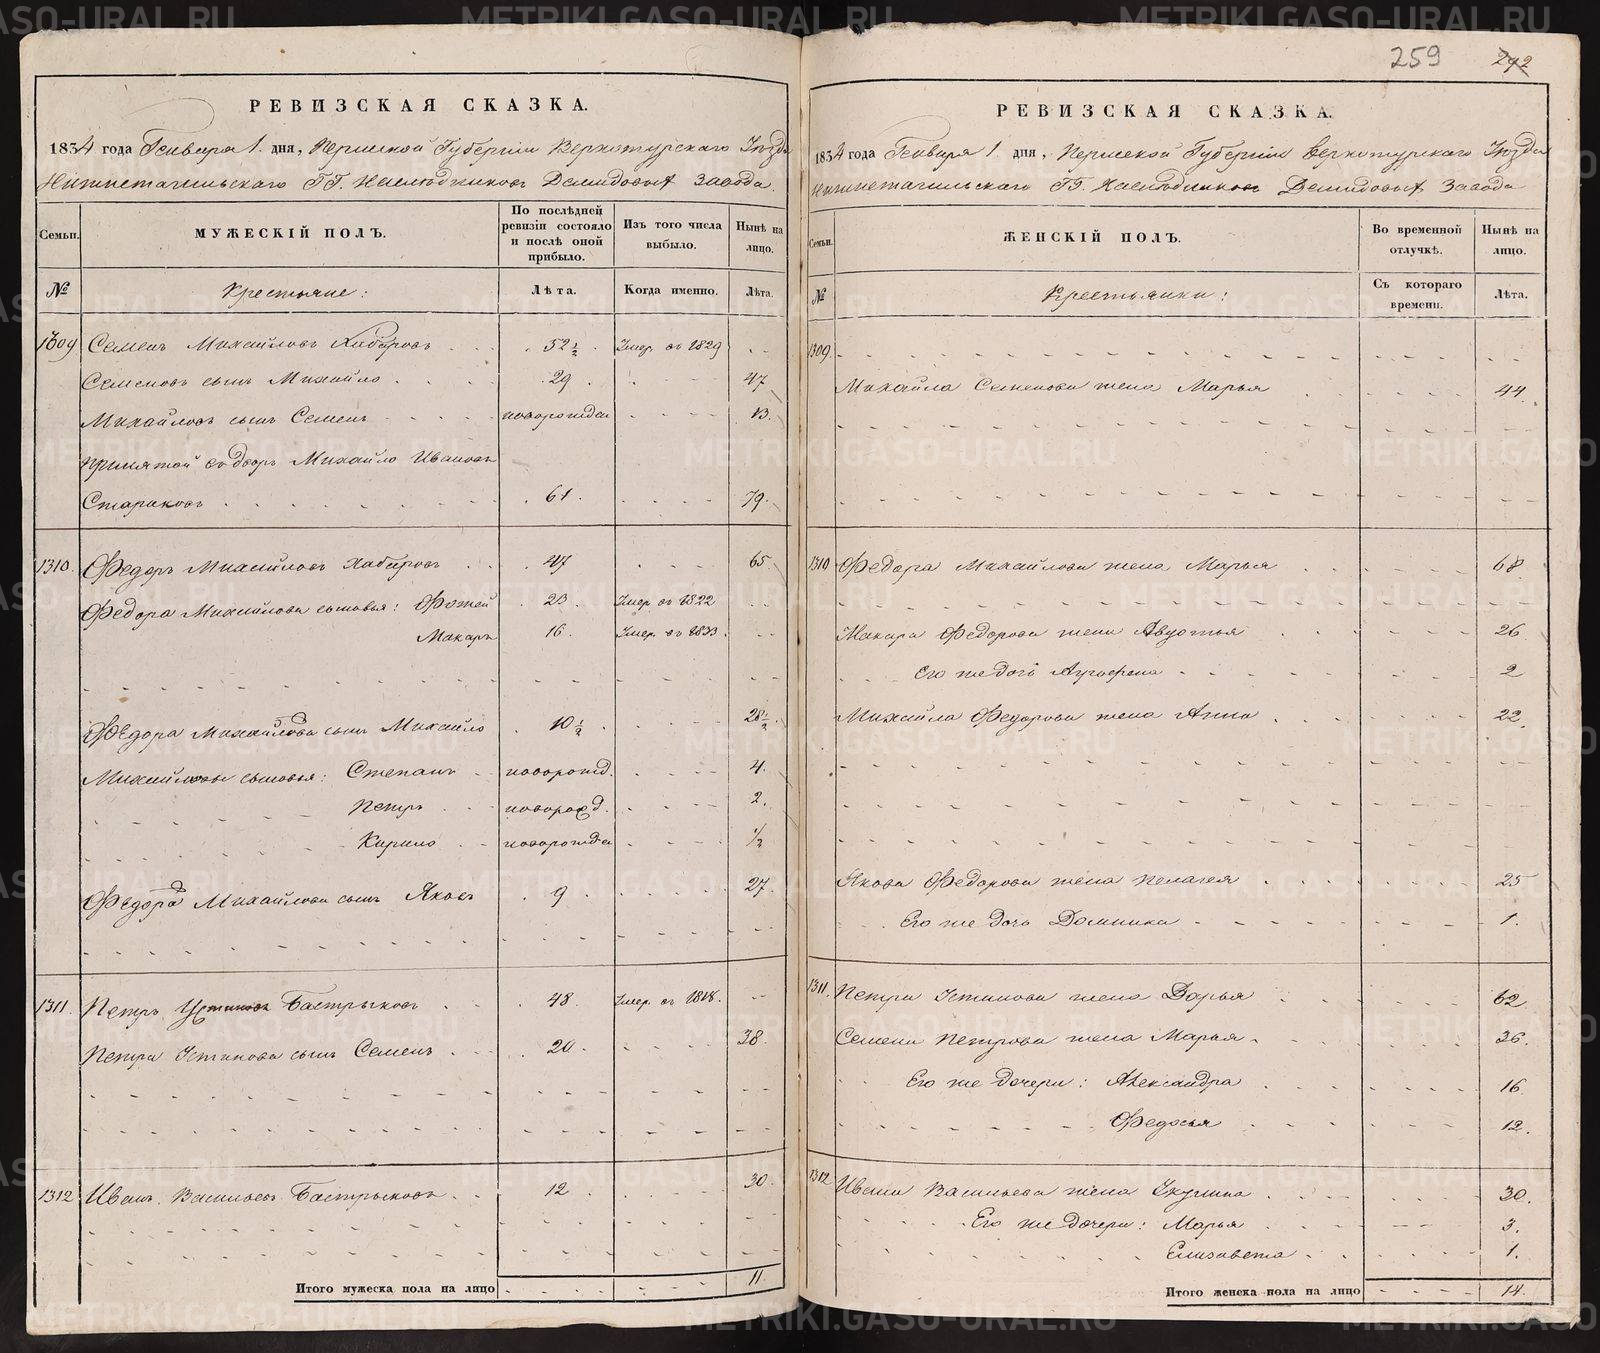 259 292
РЕВИЗСКАЯ СКАЗКА.
1834 года Генваря 1. дня, Пермской Губернии Верхотурского Уѣзда
Нижнетагильского ГГ. Наслѣдниковъ Демидовыхъ Завода.
Семьи. МУЖЕСКІЙ ПОЛЪ. По послѣдней ревизіи состояло и послѣ оной прибыло. Изъ того числа выбыло. Нынѣ на лицо.
№ Крестьяне: Лѣта. Когда именно. Лѣта.
1309 Семенъ Михайловъ Хабаровъ 52½ Умер. въ 1829
Семеновъ сынъ Михайло 29 47
Михайловъ сынъ Семенъ новорожден 13.
Принятой въ дворъ Михайло Ивановъ
Стариковъ 61. 79.
1310. Федоръ Михайловъ Хабаровъ 47 65
Федора Михайлова сыновья: Фотей 23. Умер. въ 1822
Макаръ 16. Умер. въ 1833.
Федора Михайлова сынъ Михайло 10½ 28½
Михайловы сыновья: Степанъ новорожд. 4.
Петръ новорожд. 2.
Кирило новорожден ½
Федора Михайлова сынъ Яковъ 9 27.
1311. Петръ Устиновъ Бастрыковъ 48. Умер. въ 1818.
Петра Устинова сынъ Семенъ 20. 38.
1312 Иванъ Васильевъ Бастрыковъ 12 30.
Итого мужеска пола на лицо 11.
РЕВИЗСКАЯ СКАЗКА.
1834 года Генваря 1. дня, Пермской Губерніи Верхотурского Уѣзда
Нижнетагильского ГГ. Наслѣдниковъ Демидовыхъ Завода
Семьи. ЖЕНСКІЙ ПОЛЪ. Во временной отлучкѣ. Нынѣ на лицо.
№ Крестьянки: Съ котораго времени. Лѣта.
1309.
Михайла Семенова жена Марья 44.
1310 Федора Михайлова жена Марья 68.
Макара Федорова жена Авдотья 26
Его же дочь Аграфена 2
Михайла Федорова жена Анна 22.
Якова Федорова жена Пелагея 25
Его же дочь Домника 1.
1311. Петра Устинова жена Дарья 62
Семена Петрова жена Марья 36.
Его же дочери: Александра 16
Федосья 12.
1312 Ивана Васильева жена Акулина 30.
Его же дочери: Марья 3.
Елизавета 1.
Итого женска пола на лицо 14.
METRIKI.GASO-URAL.RU